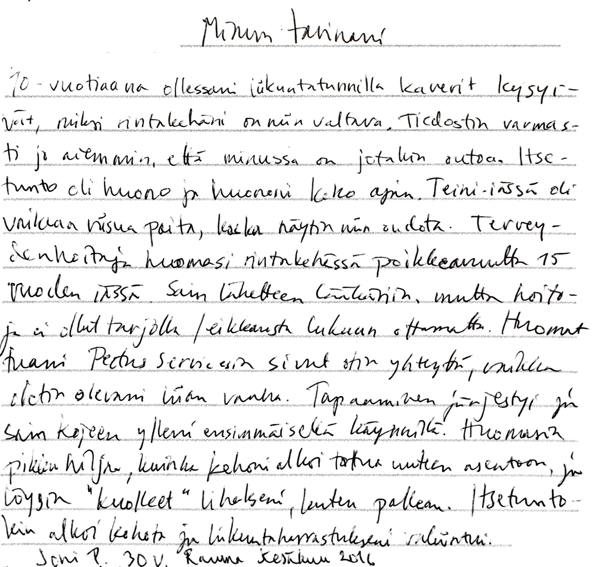 Minun tarinani
10-vuotiaana ollessani liikuntatunnilla kaverit kysyi-
vät, miksi rintakehäni on niin valtava. Tiedostin varmas-
ti jo aiemmin, että minussa on jotakin outoa. Itse-
tunto oli huono ja huononi koko ajan. Teini-iässä oli
vaikeaa riisua paita, koska näytin niin oudolta. Tervey-
denhoitaja huomasi rintakehässä poikkeavuutta 15
vuoden iässä. Sain lähetteen lääkäriin, mutta hoito-
ja ei ollut tarjolla leikkausta lukuun ottamatta. Huomat
tuani Pectus Servicesin sivut otin yhteyttä, vaikka
oletin olevani liian vanha. Tapaaminen järjestyi ja
sain kojeen ylleni ensimmäisellä käynnillä. Huomasin
pikku hiljaa, kuinka kehoni alkoi tottua uuteen asentoon, ja
löysin "kuolleet" lihakseni, kuten pallean. Itsetunto-
kin alkoi kohota ja liikuntaharrastukseni vakiintui.
Joni P. 30 v. Rauma Kesäkuu 2016